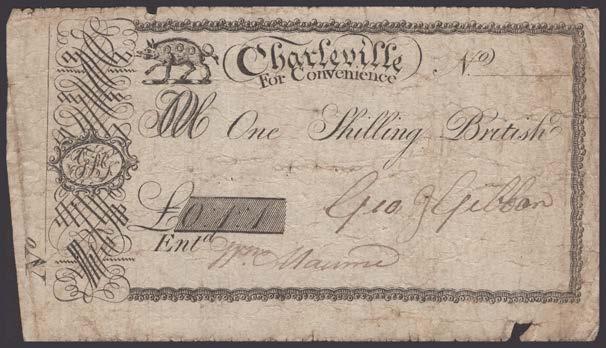 Charleville
For Convenience
No
One Shilling British
£ 0:1:1
Geo Gibbon
Entd
Wm Maume
No